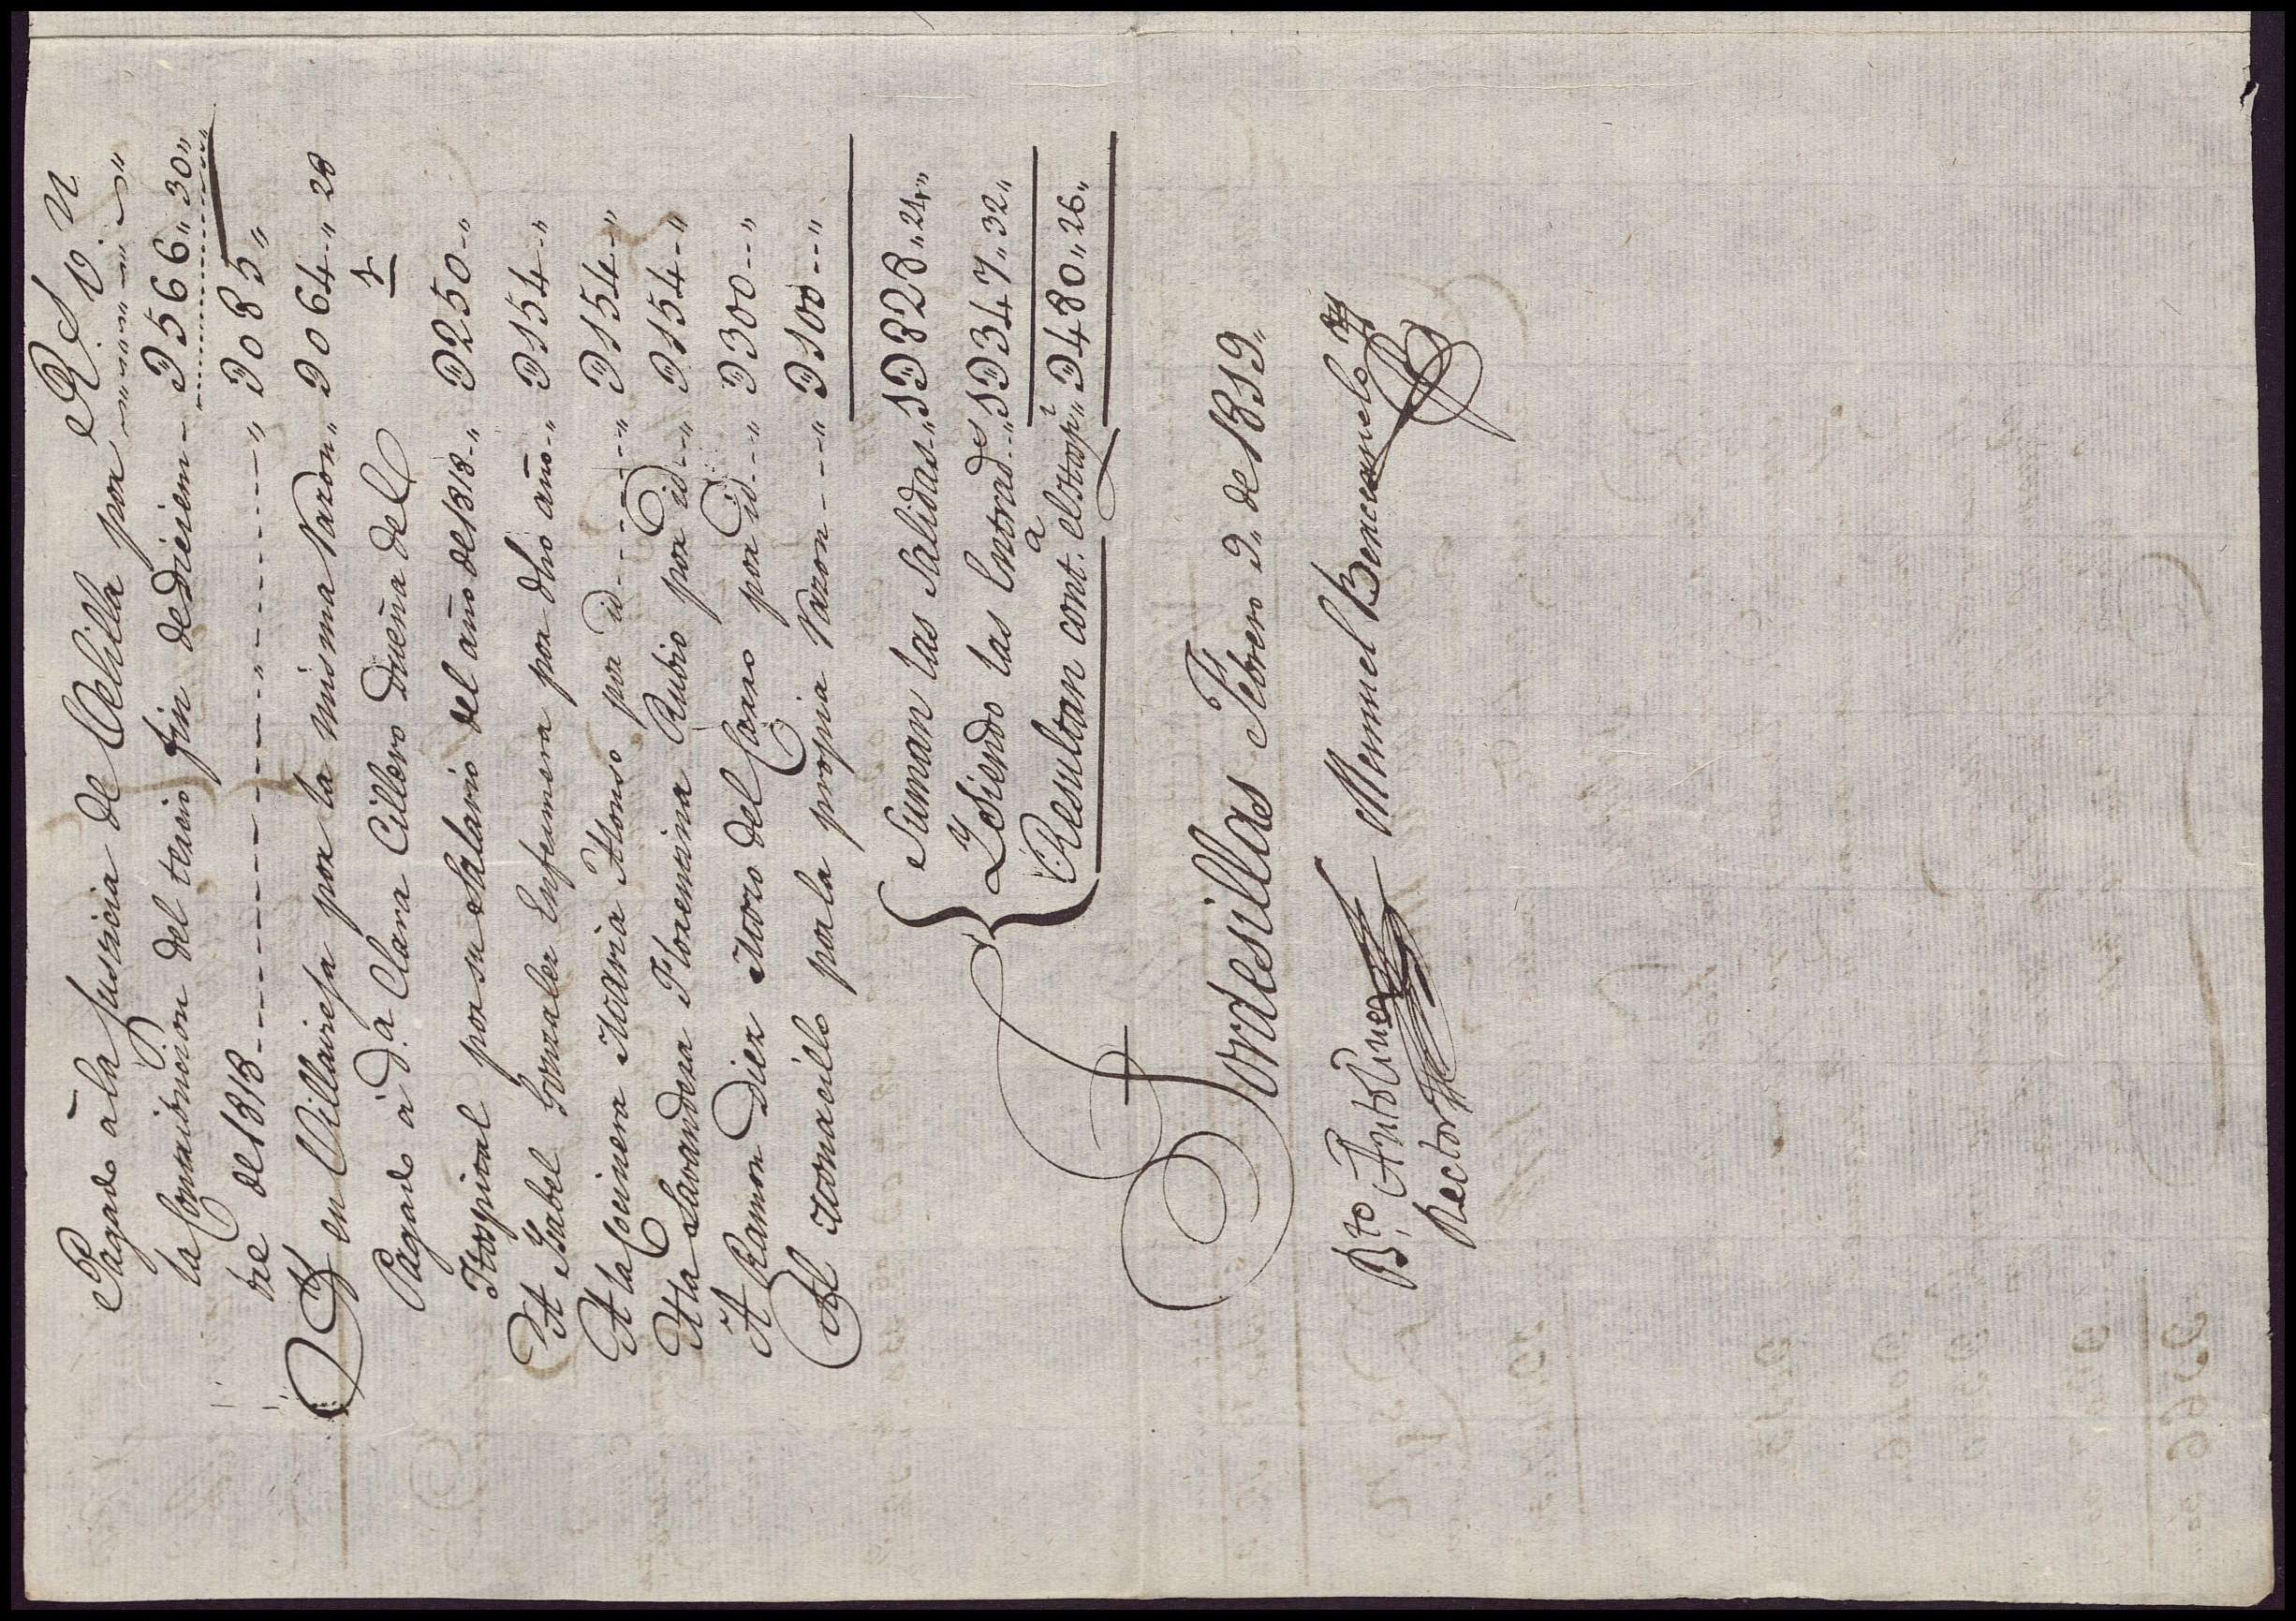 R.S V. N
Pagado â la Justicia de Velilla por
la Contribucion del tercio fin de Diciem- D566,, 30,,
bre de 1818 ---------- ,, D085,,
Y en Villavieja por la misma Razon,, D064--,, 28
Pagado à D.a Clara Cillero Dueña del
Hospital por su Salario del año de 1818-,, D250-,,
A Isabel Gonzalez Enfermera por dho año-,, D154--,,
A la Cocinera Maria Alonso por id------,, D154--,,
A la Lavandera Florentina Rubio por id--,, D154--,,
A Ramon Diez Mozo del Carro por id---,, D300--,,
Al Monacillo por la propia Razon----,, D100--,,
Suman las Salidas-,, 1D828,, 24,,
Y siendo las Entrad.s--,, 1D347,, 32,,
Resultan cont.a el Hosp.l,, D480,, 26,,
Tordesillas Febrero 9,, de 1819,,
B.to Antolinez Manuel Bencerel
Rector